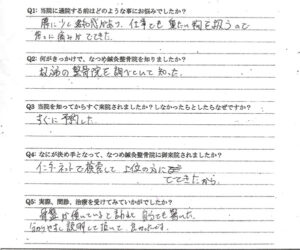 Q1: 当院に通院する前はどのような事にお悩みでしたか？
腰に少し違和感があり、仕事でも重たい物を扱うので
常に痛みがでてきた。
Q2: 何がきっかけで、なつめ鍼灸整骨院を知りましたか？
近所の整骨院を調べていて知った。
Q3: 当院を知ってからすぐ来院されましたか？しなかったらとしたらなぜですか？
すぐに予約した
Q4: なにが決め手となって、なつめ鍼灸整骨院に御来院されましたか？
インターネットで検索して上位の方に
でてきたから。
Q5: 実際、問診、治療を受けてみていかがでしたか？
骨盤が傾いていると言われ自分でも驚いた。
分かりやすく説明して頂いて良かったです。